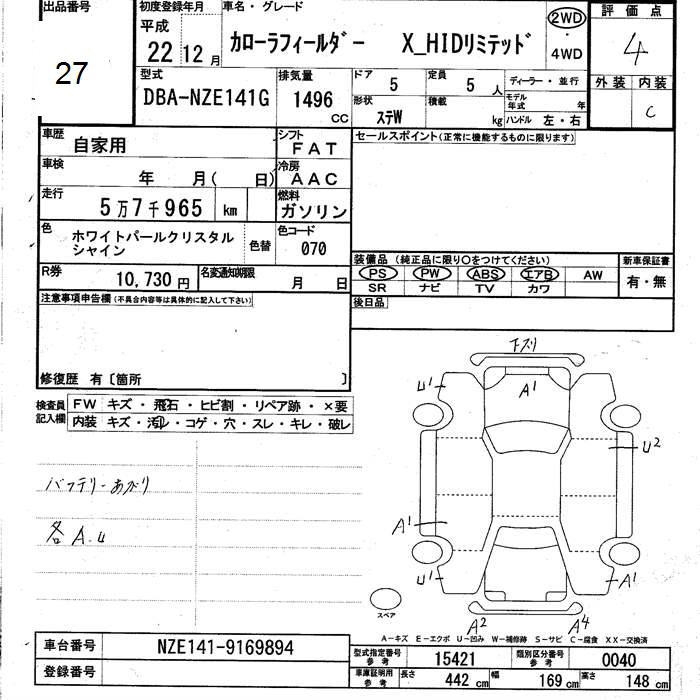 出品番号
27
初度登録年月
平成
22 12 月
車名・グレード
カローラフィールダー X_HIDリミテッド
2WD
・
4WD
評価点
4
外装 内装
C
型式
DBA-NZE141G
排気量
1496
CC
ドア
5
定員
5 人
形状
ステW
積載
kg
ディーラー・並行
モデル年式 年
ハンドル 左・右
車歴
自家用
シフト
FAT
車検
年 月( 日)
冷房
AAC
走行
5万7千965 km
燃料
ガソリン
色
ホワイトパールクリスタルシャイン
色替
色コード
070
R券
10,730 円
名変通知期限
月 日
セールスポイント(正常に機能するものに限ります)
装備品 (純正品に限り○をつけてください)
PS PW ABS エアB AW
SR ナビ TV カワ
新車保証書
有・無
後日品
注意事項申告欄(不具合内容等は具体的に記入して下さい)
修復歴 有〔箇所 〕
検査員記入欄
FW キズ・飛石・ヒビ割・リペア跡・×要
内装 キズ・汚レ・コゲ・穴・スレ・キレ・破レ
バッテリーあがり
各A.U
下スリ
U1
A1
U2
A1
U1
A1
A2
A4
スペア
A-キズ E-エクボ U-凹み W-補修跡 S-サビ C-腐食 XX-交換済
車台番号
NZE141-9169894
登録番号
型式指定番号
参考
15421
類別区分番号
参考
0040
車庫証明用
参考
長さ
442 cm
幅
169 cm
高さ
148 cm